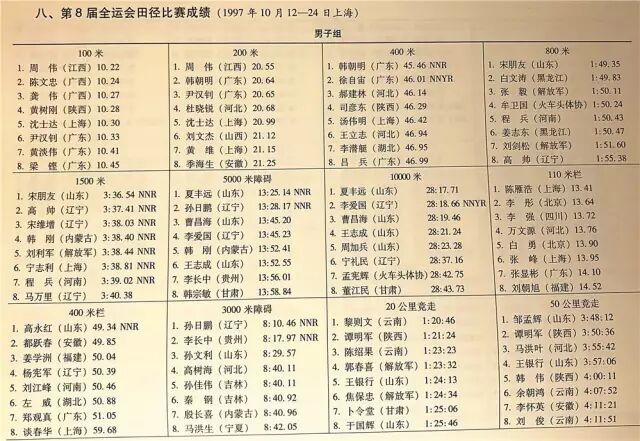 八、第8届全运会田径比赛成绩（1997年10月12—24日上海）
男子组
100米
1. 周　伟（江西）10.22
2. 陈文忠（广西）10.24
3. 龚　伟（广西）10.27
4. 黄树刚（陕西）10.28
5. 沈士达（上海）10.30
6. 尹汉钊（广东）10.33
7. 黄淡伟（广东）10.41
8. 梁　铿（广东）10.45
200米
1. 周　伟（江西）20.55
2. 韩朝明（广东）20.64
3. 尹汉钊（广东）20.65
4. 杜晓锐（河北）20.68
5. 沈士达（上海）20.99
6. 刘文杰（山西）21.12
7. 黄　维（上海）21.15
8. 季海生（安徽）21.25
400米
1. 韩朝明（广东）45.46 NNR
2. 徐自宙（广东）46.01 NNYR
3. 郝建林（河北）46.14
4. 司彦东（陕西）46.29
5. 汤伟明（上海）46.42
6. 王立志（河北）46.94
7. 李潜艇（湖北）46.95
8. 吕　兵（广东）46.99
800米
1. 宋朋友（山东）1:49.35
2. 白文涛（黑龙江）1:49.83
3. 张　毅（解放军）1:50.11
4. 牟卫国（火车头体协）1:50.24
5. 程　兵（河南）1:50.43
6. 姜志东（黑龙江）1:50.47
7. 刘剑松（解放军）1:51.60
8. 高　帅（辽宁）1:55.38
1500米
1. 宋朋友（山东）3:36.54 NNR
2. 高　帅（辽宁）3:37.41 NNR
3. 宋维增（辽宁）3:38.03 NNR
4. 韩　刚（内蒙古）3:38.40 NNR
5. 刘利军（解放军）3:38.44 NNR
6. 宁志利（上海）3:38.81 NNR
7. 程　兵（河南）3:39.02 NNR
8. 马万里（辽宁）3:40.38
5000米障碍
1. 夏丰远（山东）13:25.14 NNR
2. 孙日鹏（辽宁）13:28.17 NNR
3. 曹昌海（山东）13:45.20
4. 李爱国（辽宁）13:45.23
5. 韩　刚（内蒙古）13:52.41
6. 王志成（山东）13:52.55
7. 李长中（贵州）13:56.01
8. 韩宗敏（甘肃）13:58.84
10000米
1. 夏丰远（山东）28:17.71
2. 李爱国（辽宁）28:18.66 NNYR
3. 曹昌海（山东）28:19.46
4. 王志成（山东）28:21.24
5. 周加兵（云南）28:23.28
6. 宁礼民（辽宁）28:37.16
7. 孟宪辉（火车头体协）28:42.75
8. 董江民（甘肃）28:43.73
110米栏
1. 陈雁浩（上海）13.41
2. 李　彤（北京）13.64
3. 李　强（四川）13.72
4. 万文源（河北）13.76
5. 白　勇（北京）13.90
6. 张　峰（上海）13.95
7. 张显彬（广东）14.10
8. 刘朝旭（福建）14.52
400米栏
1. 高永红（山东）49.34 NNR
2. 都跃春（安徽）49.85
3. 姜学洲（福建）50.04
4. 杨宪军（辽宁）50.39
5. 刘江峰（河南）50.46
6. 左　威（湖北）50.88
7. 郑观真（广东）51.05
8. 谈春华（上海）59.68
3000米障碍
1. 孙日鹏（辽宁）8:10.46 NNR
2. 李长中（贵州）8:17.97 NNR
3. 孙文利（广东）8:29.57
4. 高树海（河北）8:40.11
5. 孙佳伟（吉林）8:40.11
6. 秦　钢（吉林）8:40.92
7. 殷长喜（内蒙古）8:40.96
8. 马洪生（宁夏）8:42.05
20公里竞走
1. 黎则文（云南）1:20:46
2. 谭明军（陕西）1:21:24
3. 陈绍果（云南）1:23:23
4. 郭春喜（解放军）1:23:32
5. 王银行（山东）1:24:13
6. 焦保忠（解放军）1:24:34
7. 卜令堂（甘肃）1:25:06
8. 于国辉（山东）1:25:46
50公里竞走
1. 邹孟辉（山东）3:48:12
2. 谭明军（陕西）3:50:36
3. 马洪叶（河北）3:55:42
4. 王银行（山东）3:57:06
5. 韩　伟（陕西）4:00:11
6. 余朝鸿（云南）4:07:52
7. 李怀英（安徽）4:11:21
8. 刘　俊（云南）4:11:51